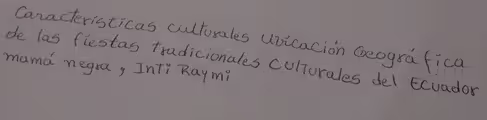 Características culturales uvicación Geográfica
de las fiestas tradicionales culturales del Ecuador
mamá negra, Inti Raymi